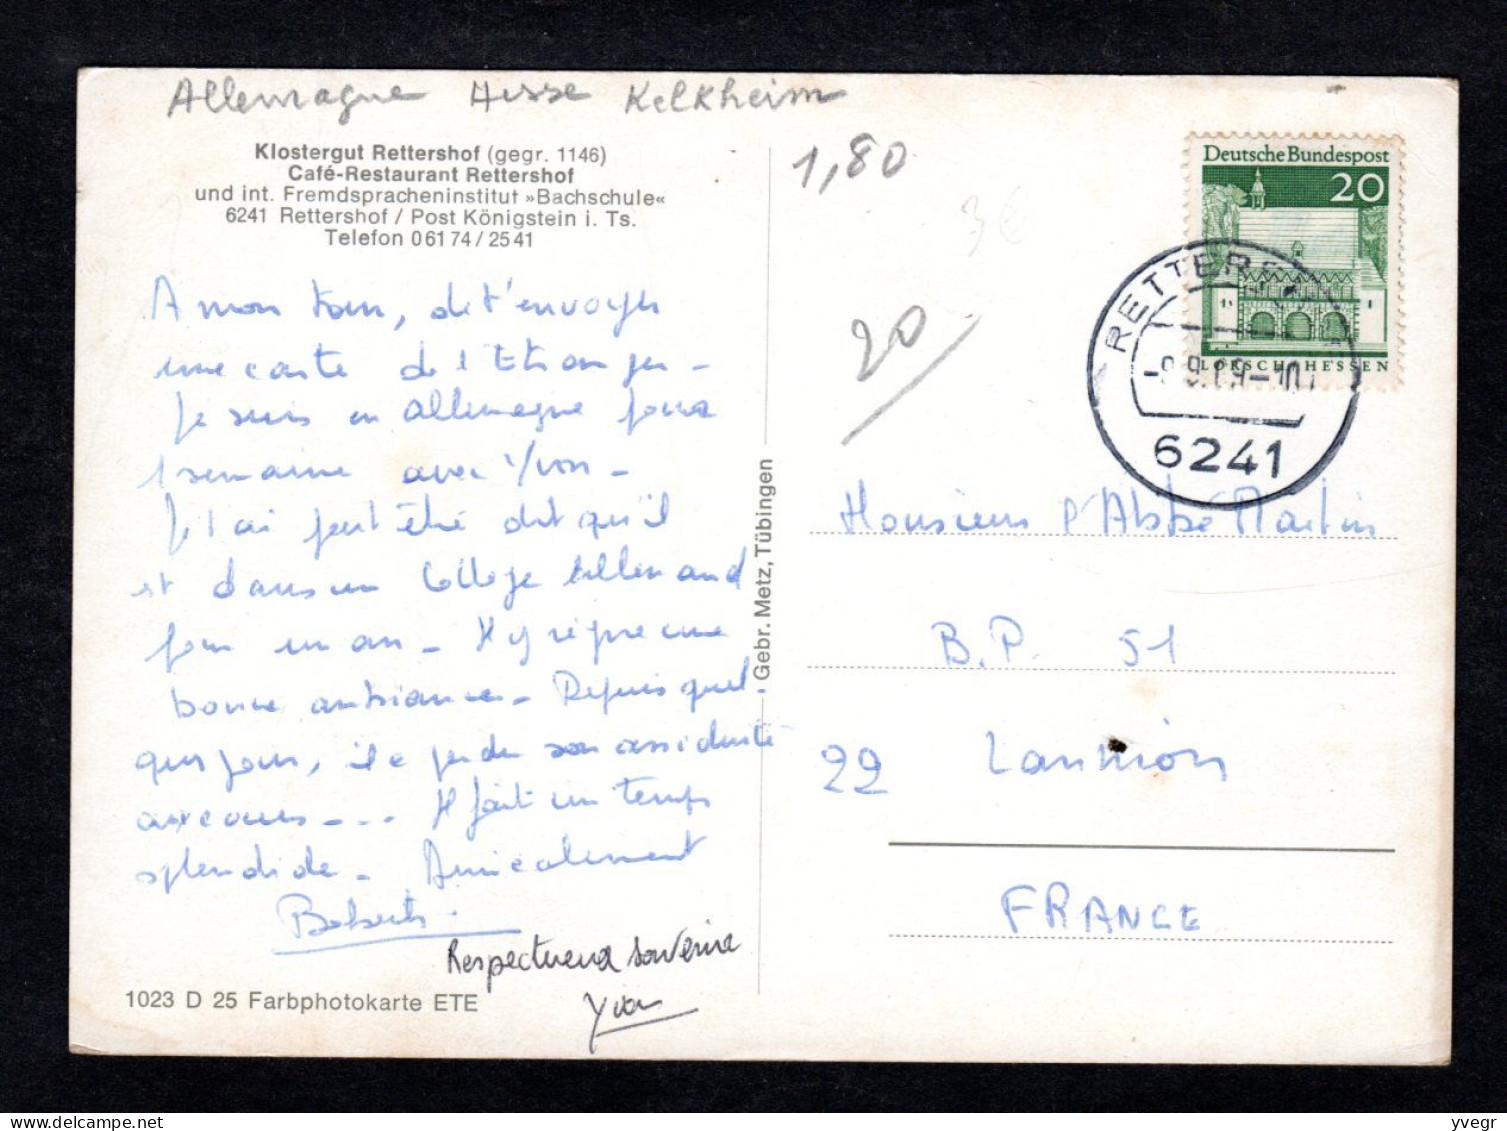 Allemagne Hesse Kelkheim
Klostergut Rettershof (gegr. 1146)
Café-Restaurant Rettershof
und int. Fremdspracheninstitut »Bachschule«
6241 Rettershof / Post Königstein i. Ts.
Telefon 0 61 74 / 25 41
A mon tour, de t'envoyer
une carte de l'Etranger -
Je suis en Allemagne pour
1 semaine avec Yvon -
Je t'ai peut être dit qu'il
est dans un Collège Allemand
pour un an - Il y règne une
bonne ambiance - Depuis quel-
ques jours, il a perdu son assiduité
aux cours - . . . Il fait un temps
splendide - Amicalement
Respectueux souvenir
Yvon
1023 D 25 Farbphotokarte ETE
Gebr. Metz, Tübingen
1,80
3€
20
Deutsche Bundespost
20
LORSCH HESSEN
6241
Monsieur l'Abbé Martin
B.P. 51
22 Lannion
FRANCE
Delcampe.net
yvegr